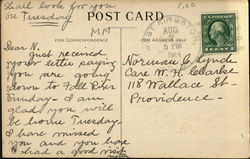 Shall look for you
on Tuesday
MM
POST CARD
FOR CORRESPONDENCE
FOR ADDRESS ONLY
KINGSTON
AUG
5 PM
1914
Dear N.
Just received
your letter saying
you are going
down to Fall River
Sunday - I am
glad you will
be home Tuesday.
I have missed
you and you have
had a good
Norman C. Lynde
Care W. H. Clarke
118 Wallace St
Providence -